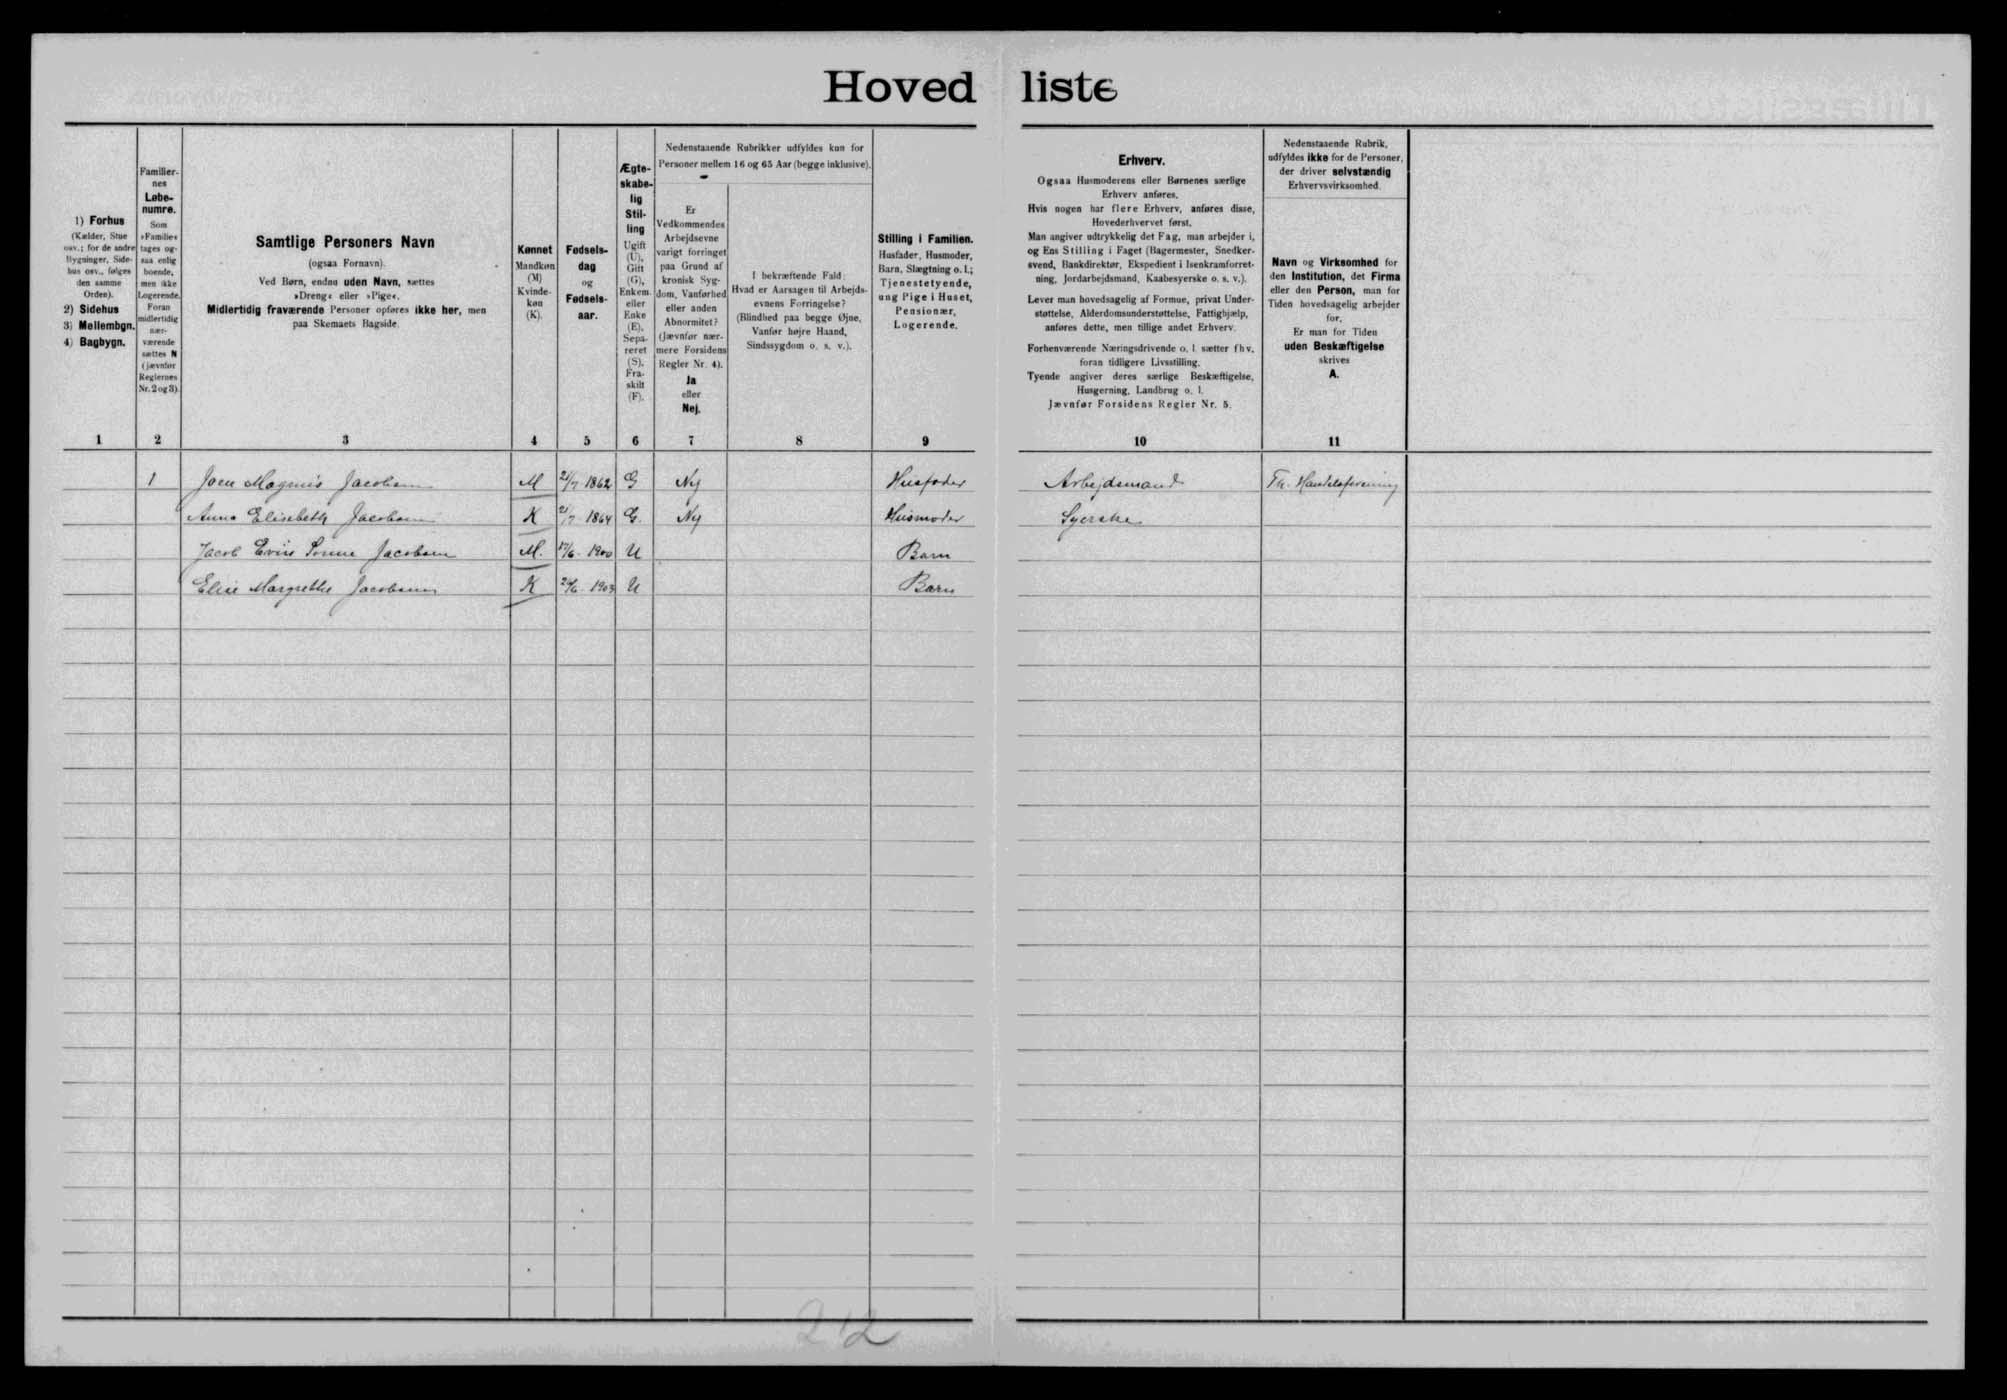 Hovedliste
1) Forhus
(Kælder, Stue
osv.; for de andre
Bygninger, Side-
hus osv., følges
den samme
Orden).
2) Sidehus
3) Mellembgn.
4) Bagbygn.
1
Familier-
nes
Løbe-
numre.
Som
»Familie«
tages og-
saa enlig
boende,
men ikke
Logerende.
Foran
midlertidig
nær-
værende
sættes N
(jævnfør
Reglernes
Nr. 2 og 3).
2
Samtlige Personers Navn
(ogsaa Fornavn).
Ved Børn, endnu uden Navn, sættes
»Dreng« eller »Pige«.
Midlertidig fraværende Personer opføres ikke her, men
paa Skemaets Bagside.
3
Kønnet
Mandkøn
(M)
Kvinde-
køn
(K).
4
Fødsels-
dag
og
Fødsels-
aar.
5
Ægte-
skabe-
lig
Stil-
ling
Ugift
(U),
Gift
(G),
Enkem.
eller
Enke
(E),
Sepa-
reret
(S),
Fra-
skilt
(F).
6
Nedenstaaende Rubrikker udfyldes kun for
Personer mellem 16 og 65 Aar (begge inklusive).
Er
Vedkommendes
Arbejdsevne
varigt forringet
paa Grund af
kronisk Syg-
dom, Vanførhed
eller anden
Abnormitet?
(Jævnfør nær-
mere Forsidens
Regler Nr. 4).
Ja
eller
Nej.
7
I bekræftende Fald:
Hvad er Aarsagen til Arbejds-
evnens Forringelse?
(Blindhed paa begge Øjne,
Vanfør højre Haand,
Sindssygdom o. s. v.).
8
Stilling i Familien.
Husfader, Husmoder,
Barn, Slægtning o. l.;
Tjenestetyende,
ung Pige i Huset,
Pensionær,
Logerende.
9
Erhverv.
Ogsaa Husmoderens eller Børnenes særlige
Erhverv anføres.
Hvis nogen har flere Erhverv, anføres disse,
Hovederhvervet først.
Man angiver udtrykkelig det Fag, man arbejder i,
og Ens Stilling i Faget (Bagermester, Snedker-
svend, Bankdirektør, Ekspedient i Isenkramforret-
ning, Jordarbejdsmand, Kaabesyerske o. s. v.).
Lever man hovedsagelig af Formue, privat Under-
støttelse, Alderdomsunderstøttelse, Fattighjælp,
anføres dette, men tillige andet Erhverv.
Forhenværende Næringsdrivende o. l. sætter fhv.
foran tidligere Livsstilling.
Tyende angiver deres særlige Beskæftigelse,
Husgerning, Landbrug o. l.
Jævnfør Forsidens Regler Nr. 5.
10
Nedenstaaende Rubrik,
udfyldes ikke for de Personer,
der driver selvstændig
Erhvervsvirksomhed.
Navn og Virksomhed for
den Institution, det Firma
eller den Person, man for
Tiden hovedsagelig arbejder
for.
Er man for Tiden
uden Beskæftigelse
skrives
A.
11
1 Joen Magnus Jacobsen M 21/7 1862 G Nej Husfader Arbejdsmand Th. Handelsforening
Anna Elisebeth Jacobsen K 21/7 1864 G. Nej Husmoder Syerske
Jacob Jacobsen M. 17/6 1900 U Barn
Elise Margrethe Jacobsen K 24/6 1903 U Barn
212